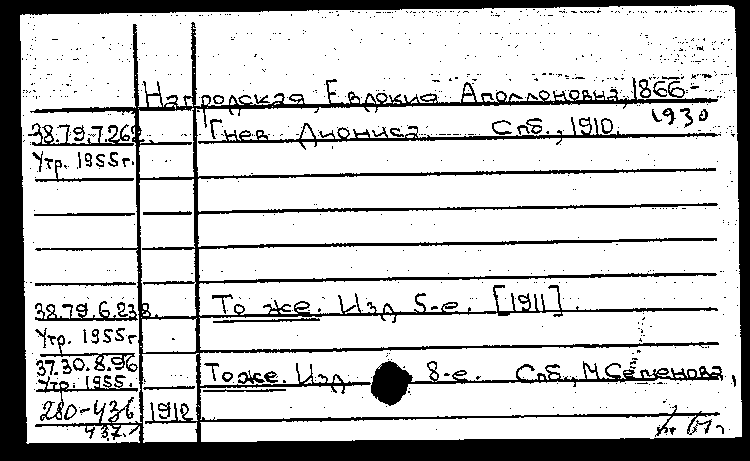 Нагродская, Евдокия Аполлоновна, 1866-
1930
38.79.7.262. Гнев Диониса. Спб., 1910.
Утр. 1955г.
38.79.6.238. То же. Изд 5-е. [1911].
Утр. 1955г.
37.30.8.96
Утр. 1955. То же. Изд 8-е. Спб., М. Семенова,
280-436 1912
437.